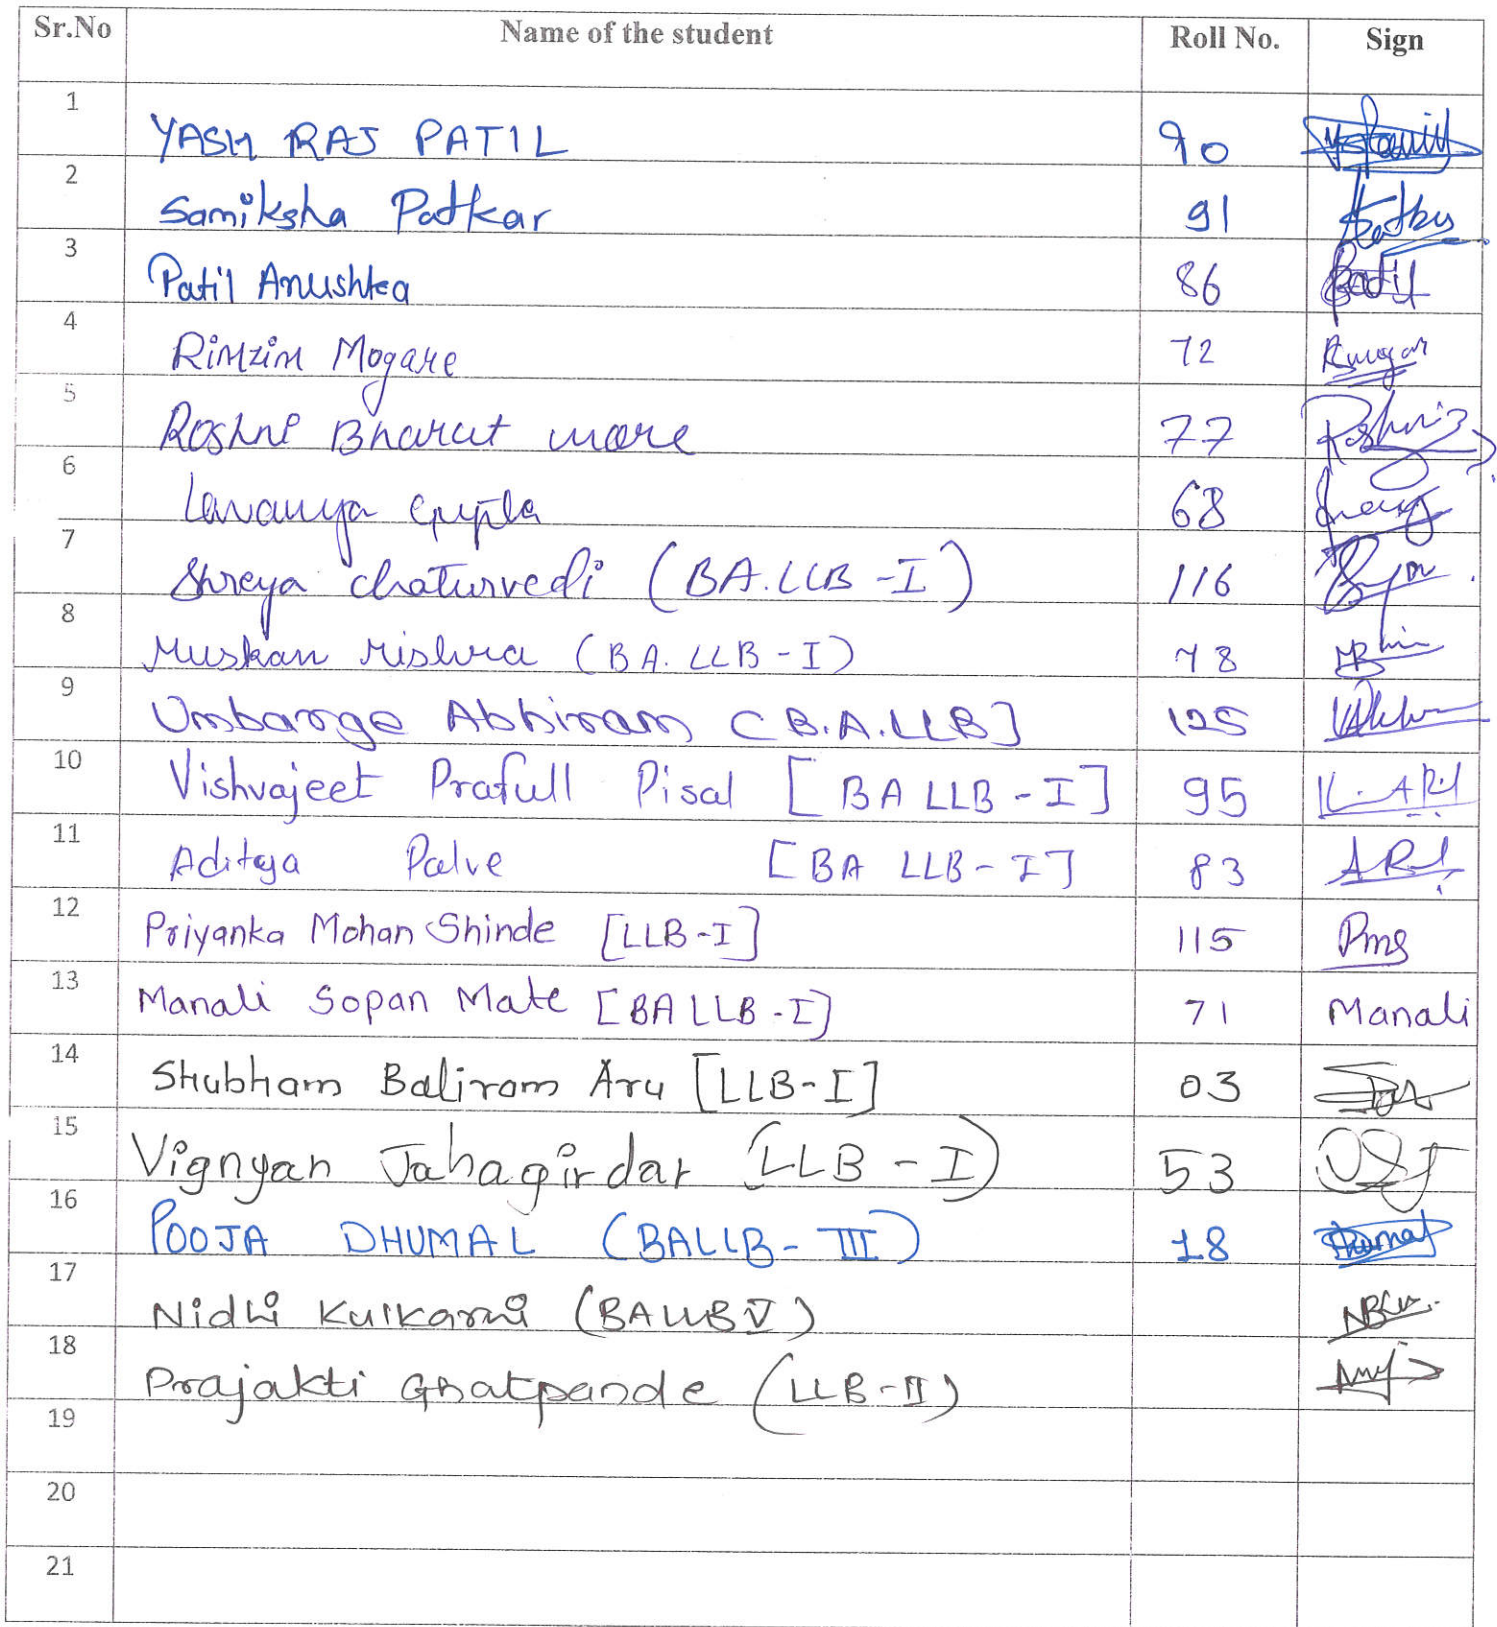 Sr.No Name of the student Roll No. Sign
1 YASH RAJ PATIL 90
2 Samiksha Patkar 91
3 Patil Anushka 86 Patil
4 Rimzim Mogare 72
5 Roshni Bharat more 77 Roshni
6 Lavanya Gupta 68
7 Shreya chaturvedi (BA.LLB -I) 116
8 Muskan Mishra (BA. LLB -I) 78
9 Umbarge Abhiram (B.A.LLB] 125
10 Vishvajeet Prafull Pisal [BA LLB - I] 95
11 Aditya Palve [BA LLB - I] 83
12 Priyanka Mohan Shinde [LLB-I] 115 Pms
13 Manali Sopan Mate [BA LLB -I] 71 Manali
14 Shubham Baliram Aru [LLB-I] 03
15 Vignyan Jahagirdar (LLB - I) 53
16 POOJA DHUMAL (BALLB- III) 18 Dhumal
17 Nidhi Kulkarni (BALLB V)
18 Prajakti Ghatpande (LLB-II)
19
20
21